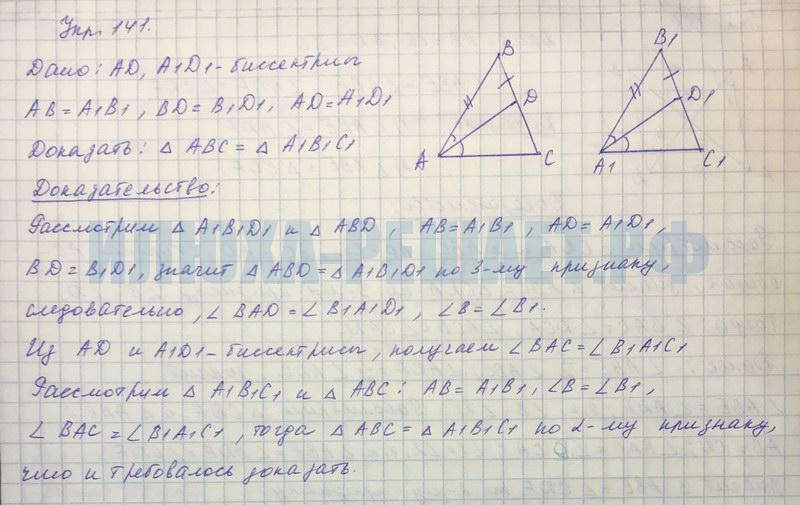 Упр. 141.
Дано: AD, A1D1 - биссектрисы
AB = A1B1, BD = B1D1, AD = A1D1
Доказать: △ ABC = △ A1B1C1
Доказательство:
Рассмотрим △ A1B1D1 и △ ABD, AB = A1B1, AD = A1D1,
BD = B1D1, значит △ ABD = △ A1B1D1 по 3-му признаку,
следовательно, ∠ BAD = ∠ B1A1D1, ∠B = ∠B1.
Из AD и A1D1 - биссектрисы, получаем ∠BAC = ∠B1A1C1
Рассмотрим △ A1B1C1 и △ ABC: AB = A1B1, ∠B = ∠B1,
∠ BAC = ∠B1A1C1, тогда △ ABC = △ A1B1C1 по 2-му признаку,
что и требовалось доказать.
B
D
A
C
B1
D1
A1
C1
ИЛЮХА-РЕШАЕТ.РФ